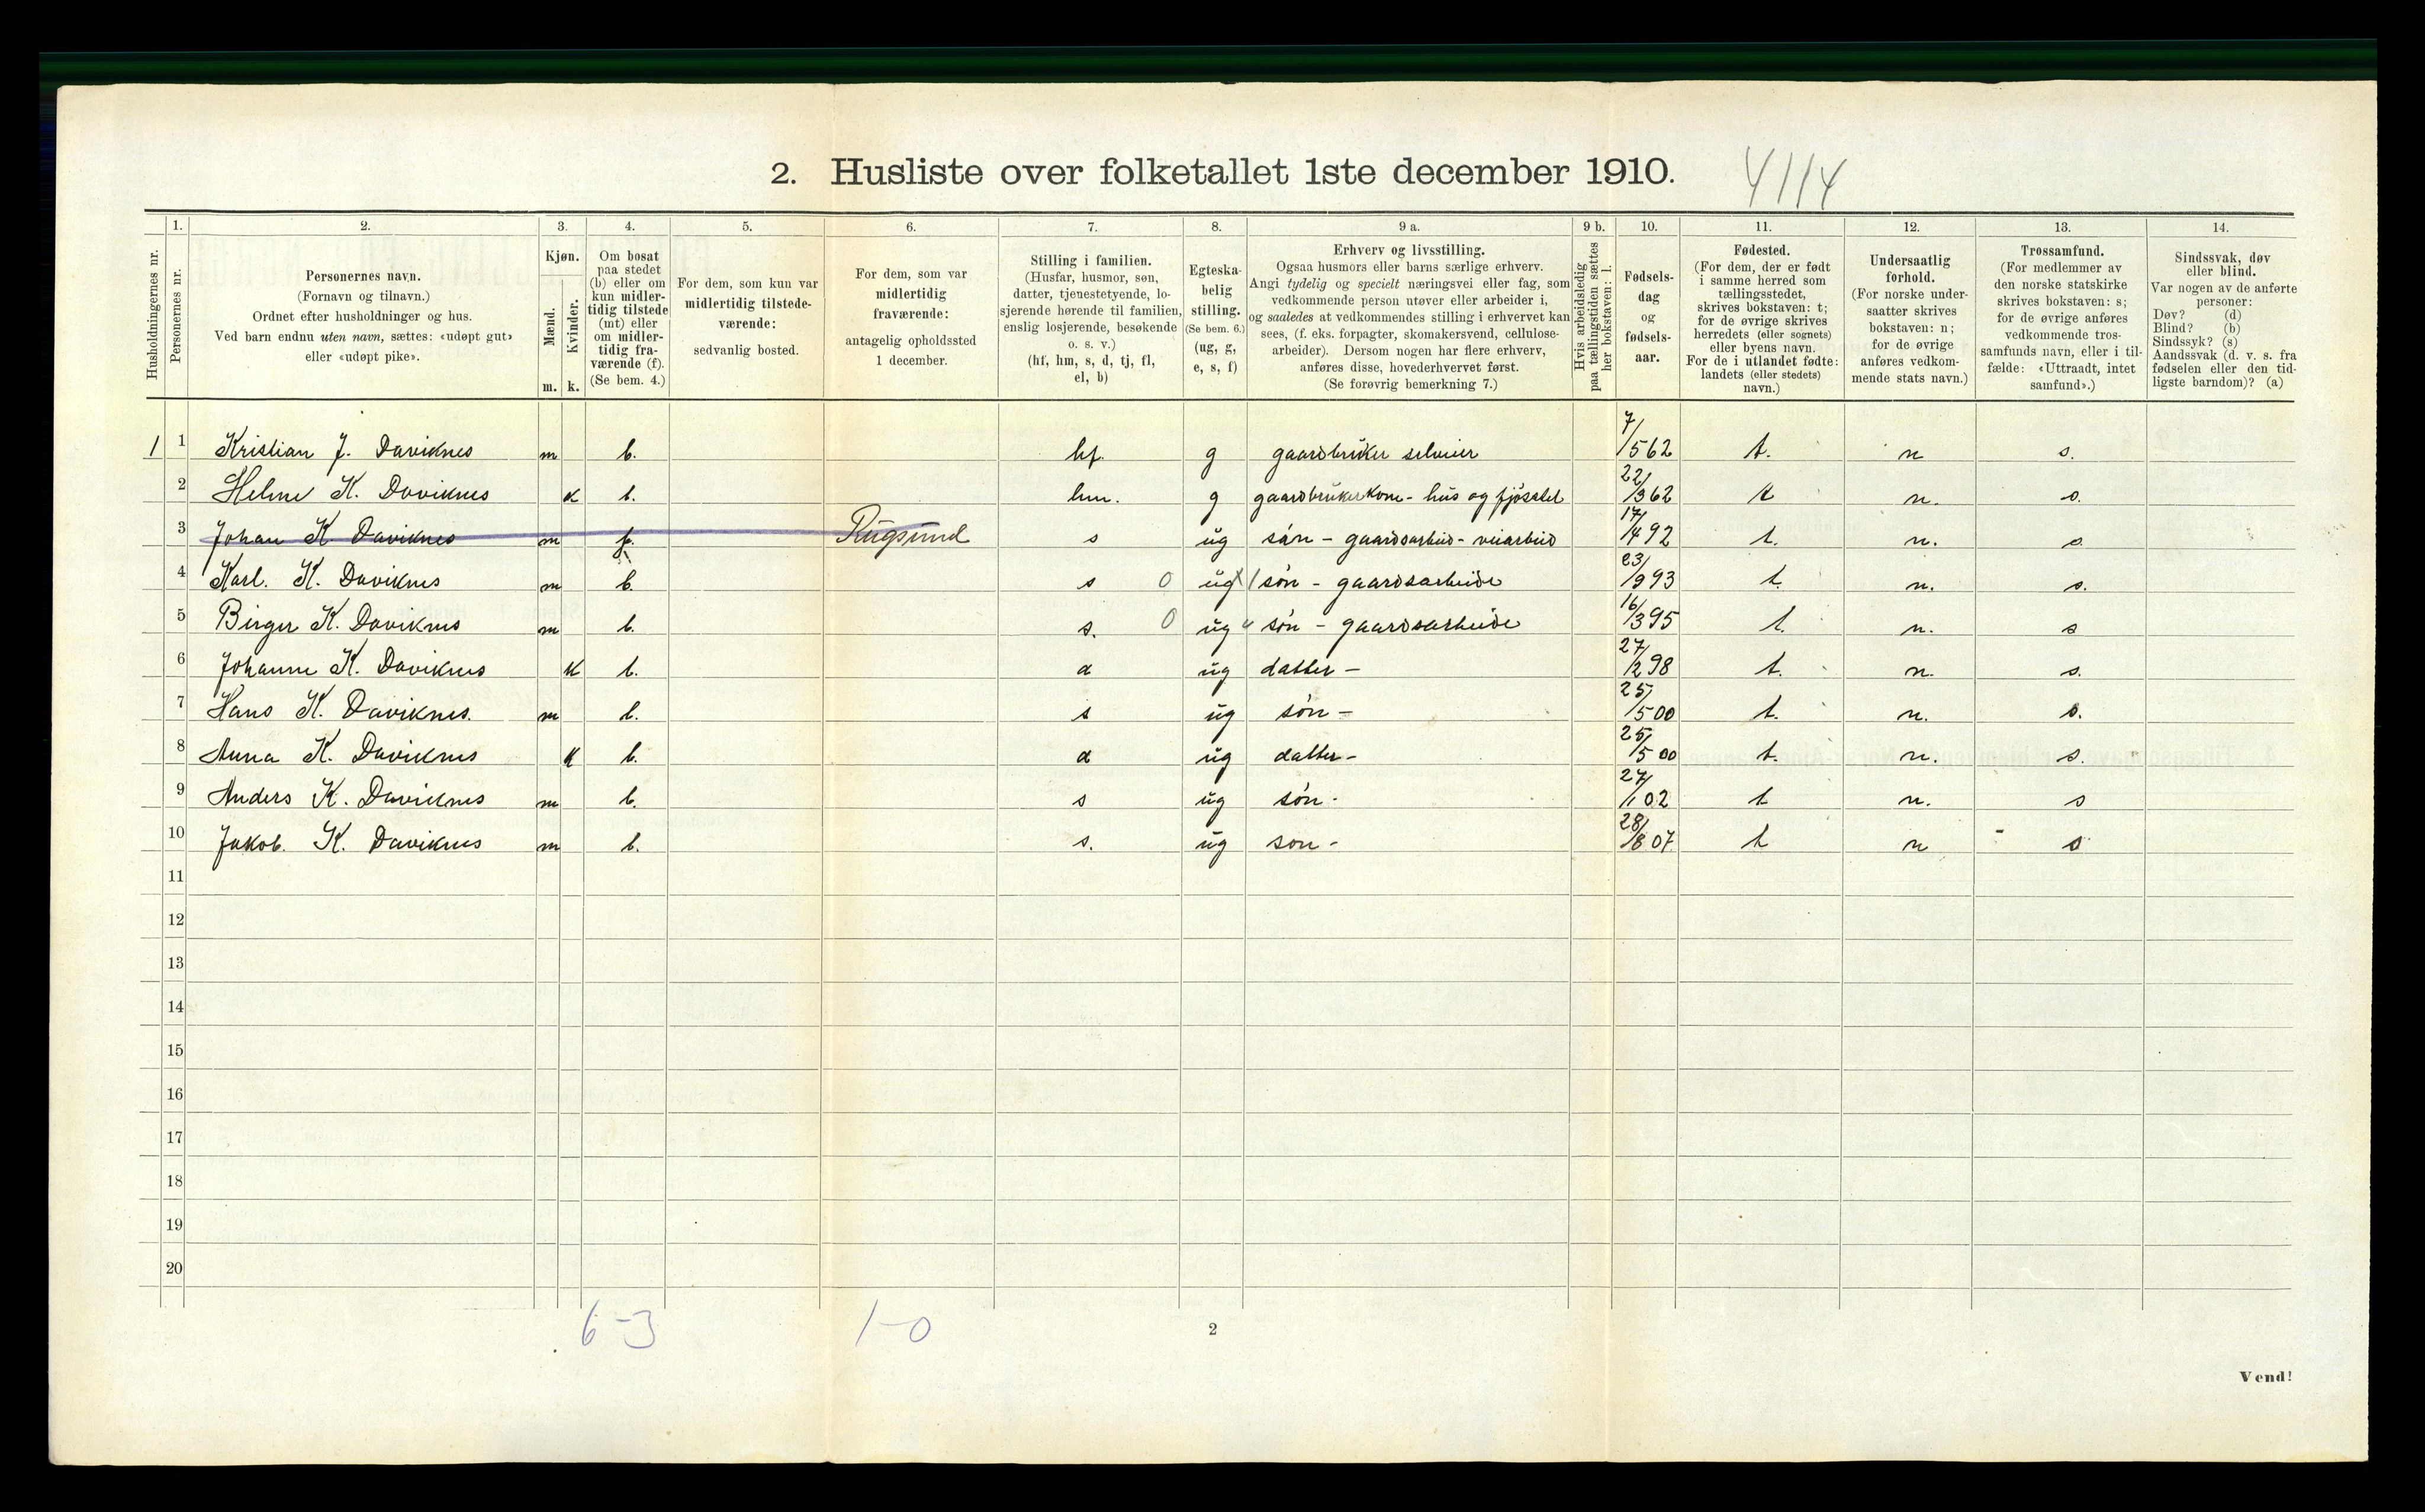 2. Husliste over folketallet 1ste december 1910. 4114
Husholdningernes nr.
1. Personernes nr.
2. Personernes navn.
(Fornavn og tilnavn.)
Ordnet efter husholdninger og hus.
Ved barn endnu uten navn, sættes: «udøpt gut»
eller «udøpt pike».
3. Kjøn.
Mænd. m.
Kvinder. k.
4. Om bosat
paa stedet
(b) eller om
kun midler-
tidig tilstede
(mt) eller
om midler-
tidig fra-
værende (f).
(Se bem. 4.)
5. For dem, som kun var
midlertidig tilstede-
værende:
sedvanlig bosted.
6. For dem, som var
midlertidig
fraværende:
antagelig opholdssted
1 december.
7. Stilling i familien.
(Husfar, husmor, søn,
datter, tjenestetyende, lo-
sjerende hørende til familien,
enslig losjerende, besøkende
o. s. v.)
(hf, hm, s, d, tj, fl,
el, b)
8. Egteska-
belig
stilling.
(Se bem. 6.)
(ug, g,
e, s, f)
9 a. Erhverv og livsstilling.
Ogsaa husmors eller barns særlige erhverv.
Angi tydelig og specielt næringsvei eller fag, som
vedkommende person utøver eller arbeider i,
og saaledes at vedkommendes stilling i erhvervet kan
sees, (f. eks. forpagter, skomakersvend, cellulose-
arbeider). Dersom nogen har flere erhverv,
anføres disse, hovederhvervet først.
(Se forøvrig bemerkning 7.)
9 b. Hvis arbeidsledig
paa tællingstiden sættes
her bokstaven: l.
10. Fødsels-
dag
og
fødsels-
aar.
11. Fødested.
(For dem, der er født
i samme herred som
tællingsstedet,
skrives bokstaven: t;
for de øvrige skrives
herredets (eller sognets)
eller byens navn.
For de i utlandet fødte:
landets (eller stedets)
navn.)
12. Undersaatlig
forhold.
(For norske under-
saatter skrives
bokstaven: n;
for de øvrige
anføres vedkom-
mende stats navn.)
13. Trossamfund.
(For medlemmer av
den norske statskirke
skrives bokstaven: s;
for de øvrige anføres
vedkommende tros-
samfunds navn, eller i til-
fælde: «Uttraadt, intet
samfund».)
14. Sindssvak, døv
eller blind.
Var nogen av de anførte
personer:
Døv? (d)
Blind? (b)
Sindssyk? (s)
Aandssvak (d. v. s. fra
fødselen eller den tid-
ligste barndom)? (a)
1 1 Kristian J. Daviknes m b. hf. g gaardbruker selveier 7/5 62 t. n s.
2 Helene K. Daviknes k b. hm. g gaardbrukerkone - hus og fjösstel 22/3 62 t n. s.
3 Johan K. Daviknes m f. Rugsund s ug sön - gaardsarbeid - veiarbeid 17/4 92 t. n. s.
4 Karl. K. Daviknes m b. s 0 ug sön - gaardsarbeide 23/9 93 t. n. s.
5 Birger K. Daviknes m b. s. 0 ug sön - gaardsarbeide 16/3 95 t. n. s
6 Johanne K. Daviknes k b. d ug datter - 27/2 98 t. n. s.
7 Hans K. Daviknes. m b. s ug sön - 25/5 00 t. n. s.
8 Anna K. Daviknes k b. d ug datter - 25/5 00 t. n. s.
9 Anders K. Daviknes m b. s ug sön - 27/1 02 t n. s
10 Jakob. K. Daviknes m b. s. ug son - 28/8 07. t n s
11
12
13
14
15
16
17
18
19
20
6-3 1-0 2
Vend!